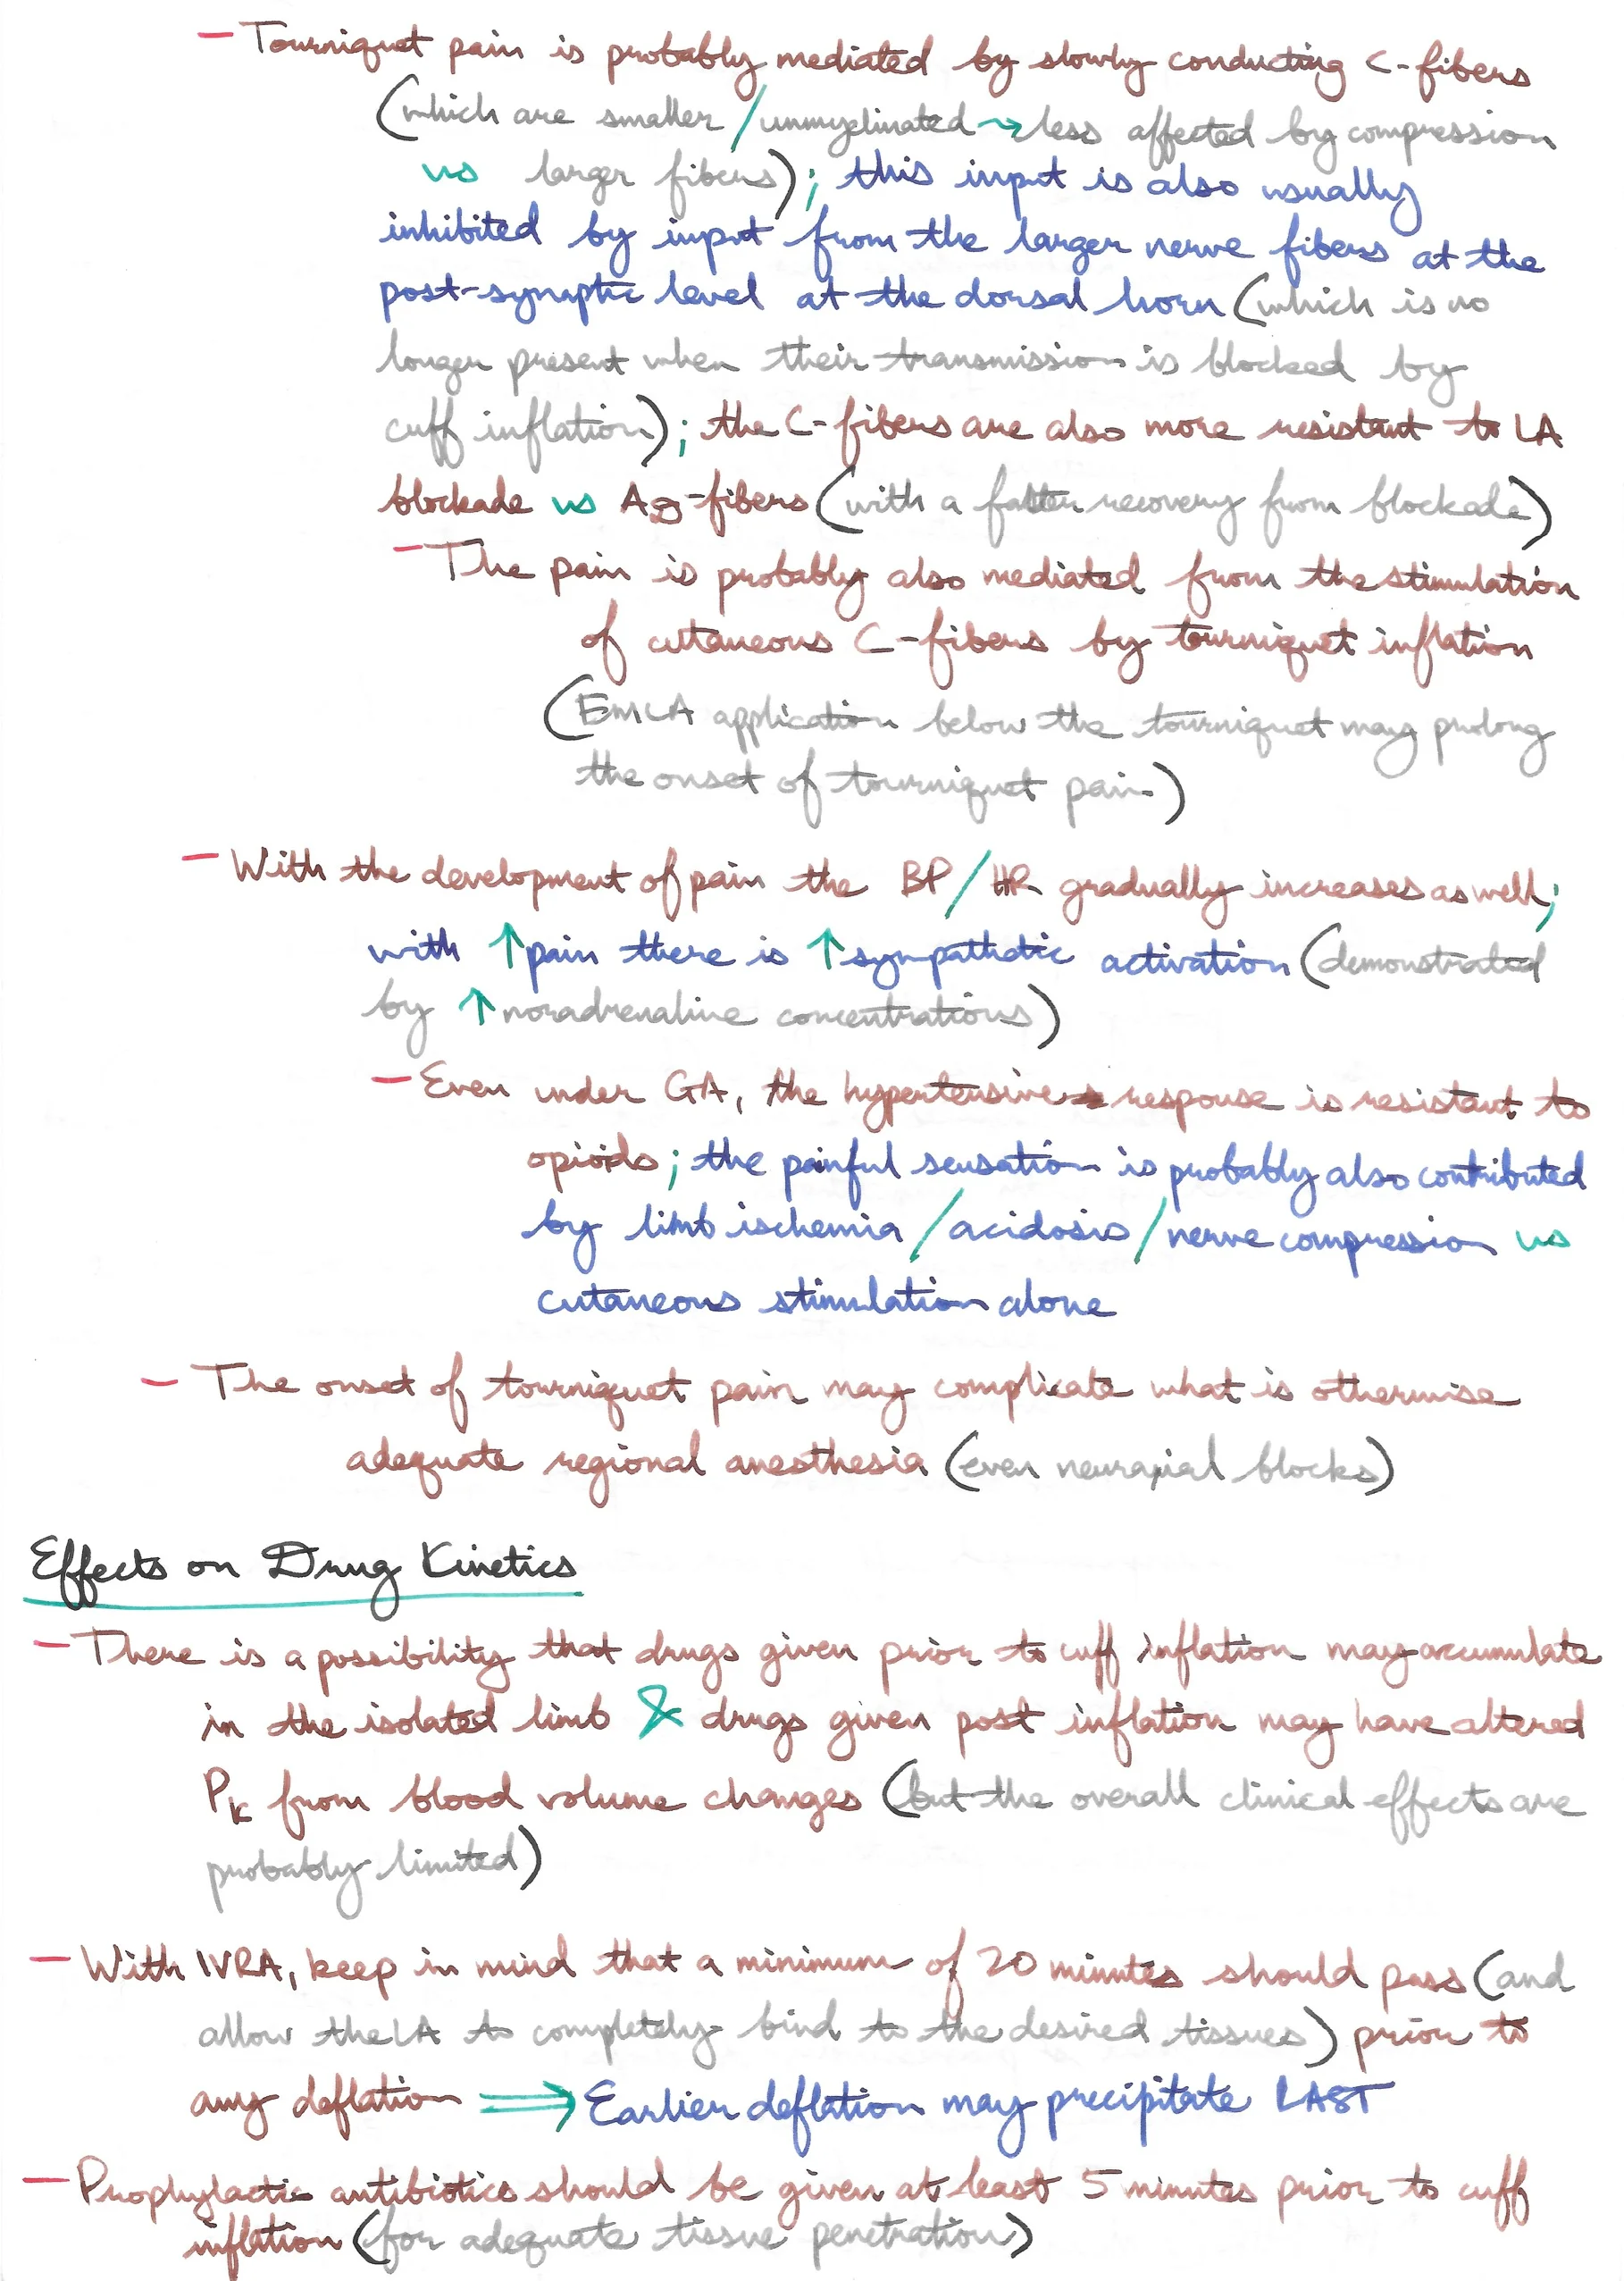 - Tourniquet pain is probably mediated by slowly conducting C-fibers
(which are smaller / unmyelinated → less affected by compression
vs larger fibers); this input is also usually
inhibited by input from the larger nerve fibers at the
post-synaptic level at the dorsal horn (which is no
longer present when their transmission is blocked by
cuff inflation); the C-fibers are also more resistant to LA
blockade vs A-fibers (with a faster recovery from blockade)
- The pain is probably also mediated from the stimulation
of cutaneous C-fibers by tourniquet inflation
(EMLA application below the tourniquet may prolong
the onset of tourniquet pain)
- With the development of pain the BP / HR gradually increases as well;
with ↑ pain there is ↑ sympathetic activation (demonstrated
by ↑ noradrenaline concentrations)
- Even under GA, the hypertensive response is resistant to
opioids; the painful sensation is probably also contributed
by limb ischemia / acidosis / nerve compression vs
cutaneous stimulation alone
- The onset of tourniquet pain may complicate what is otherwise
adequate regional anesthesia (even neuraxial blocks)
Effects on Drug Kinetics
- There is a possibility that drugs given prior to cuff inflation may accumulate
in the isolated limb & drugs given post inflation may have altered
PK from blood volume changes (but the overall clinical effects are
probably limited)
- With IVRA, keep in mind that a minimum of 20 minutes should pass (and
allow the LA to completely bind to the desired tissues) prior to
any deflation ⇒ Earlier deflation may precipitate LAST
- Prophylactic antibiotics should be given at least 5 minutes prior to cuff
inflation (for adequate tissue penetration)